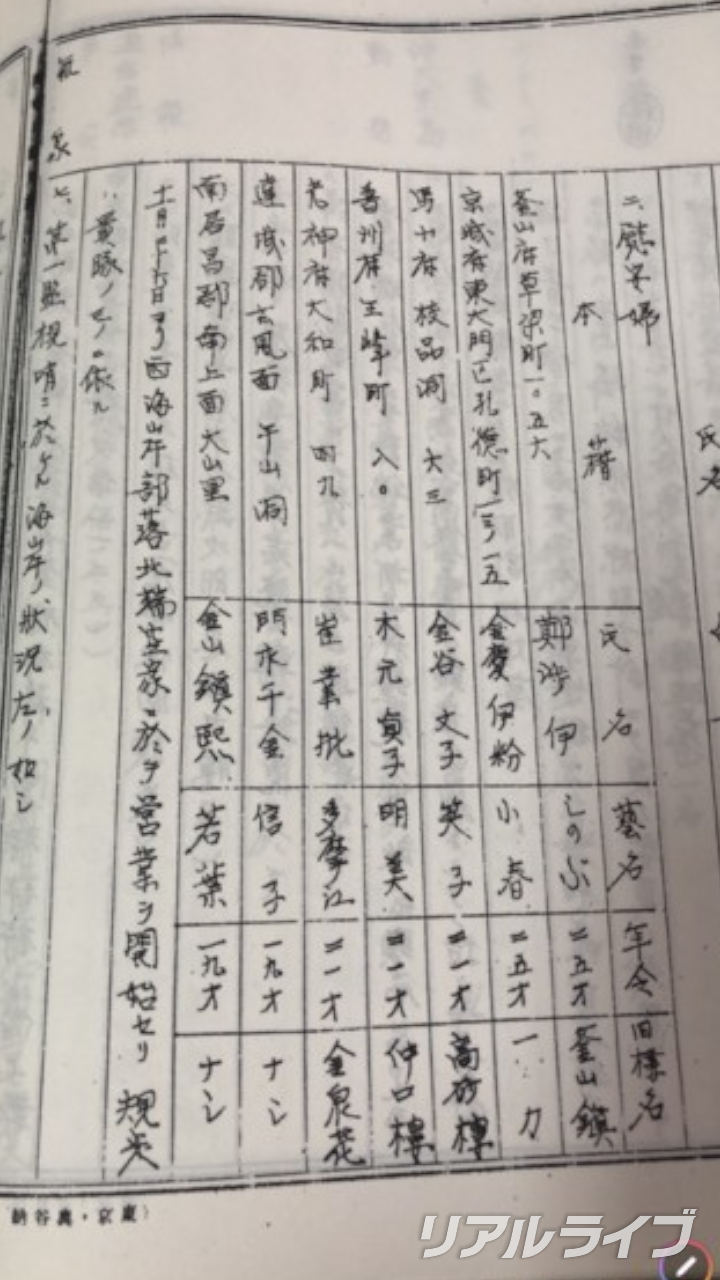 氏名
二、慰安婦
本籍 氏名 藝名 年令 旧樓名
釜山府草梁町一〇五六 鄭 伊 しのぶ 二五才 釜山鎮
京城府東大門区孔徳町一三ノ一五 金慶伊粉 小春 二五才 一力
馬山府校品洞六三 金谷文子 英子 二一才 高砂樓
晋州府玉峰町八〇 木元貞子 明美 二一才 仲口樓
大和町四九 崔業 多摩江 二一才 金泉花
達城郡玄風面 山洞 門永千金 信子 一九才 ナシ
南居昌郡南上面大山里 金山鎮熙 若葉 一九才 ナシ
十一月二十六日ヨリ西海岸部落北端空家ニ於テ営業ヲ開始セリ 規定
ハ モノニ依ル
七、第一監視哨ニ於ケル海岸ノ状況左ノ如シ
リアルライブ